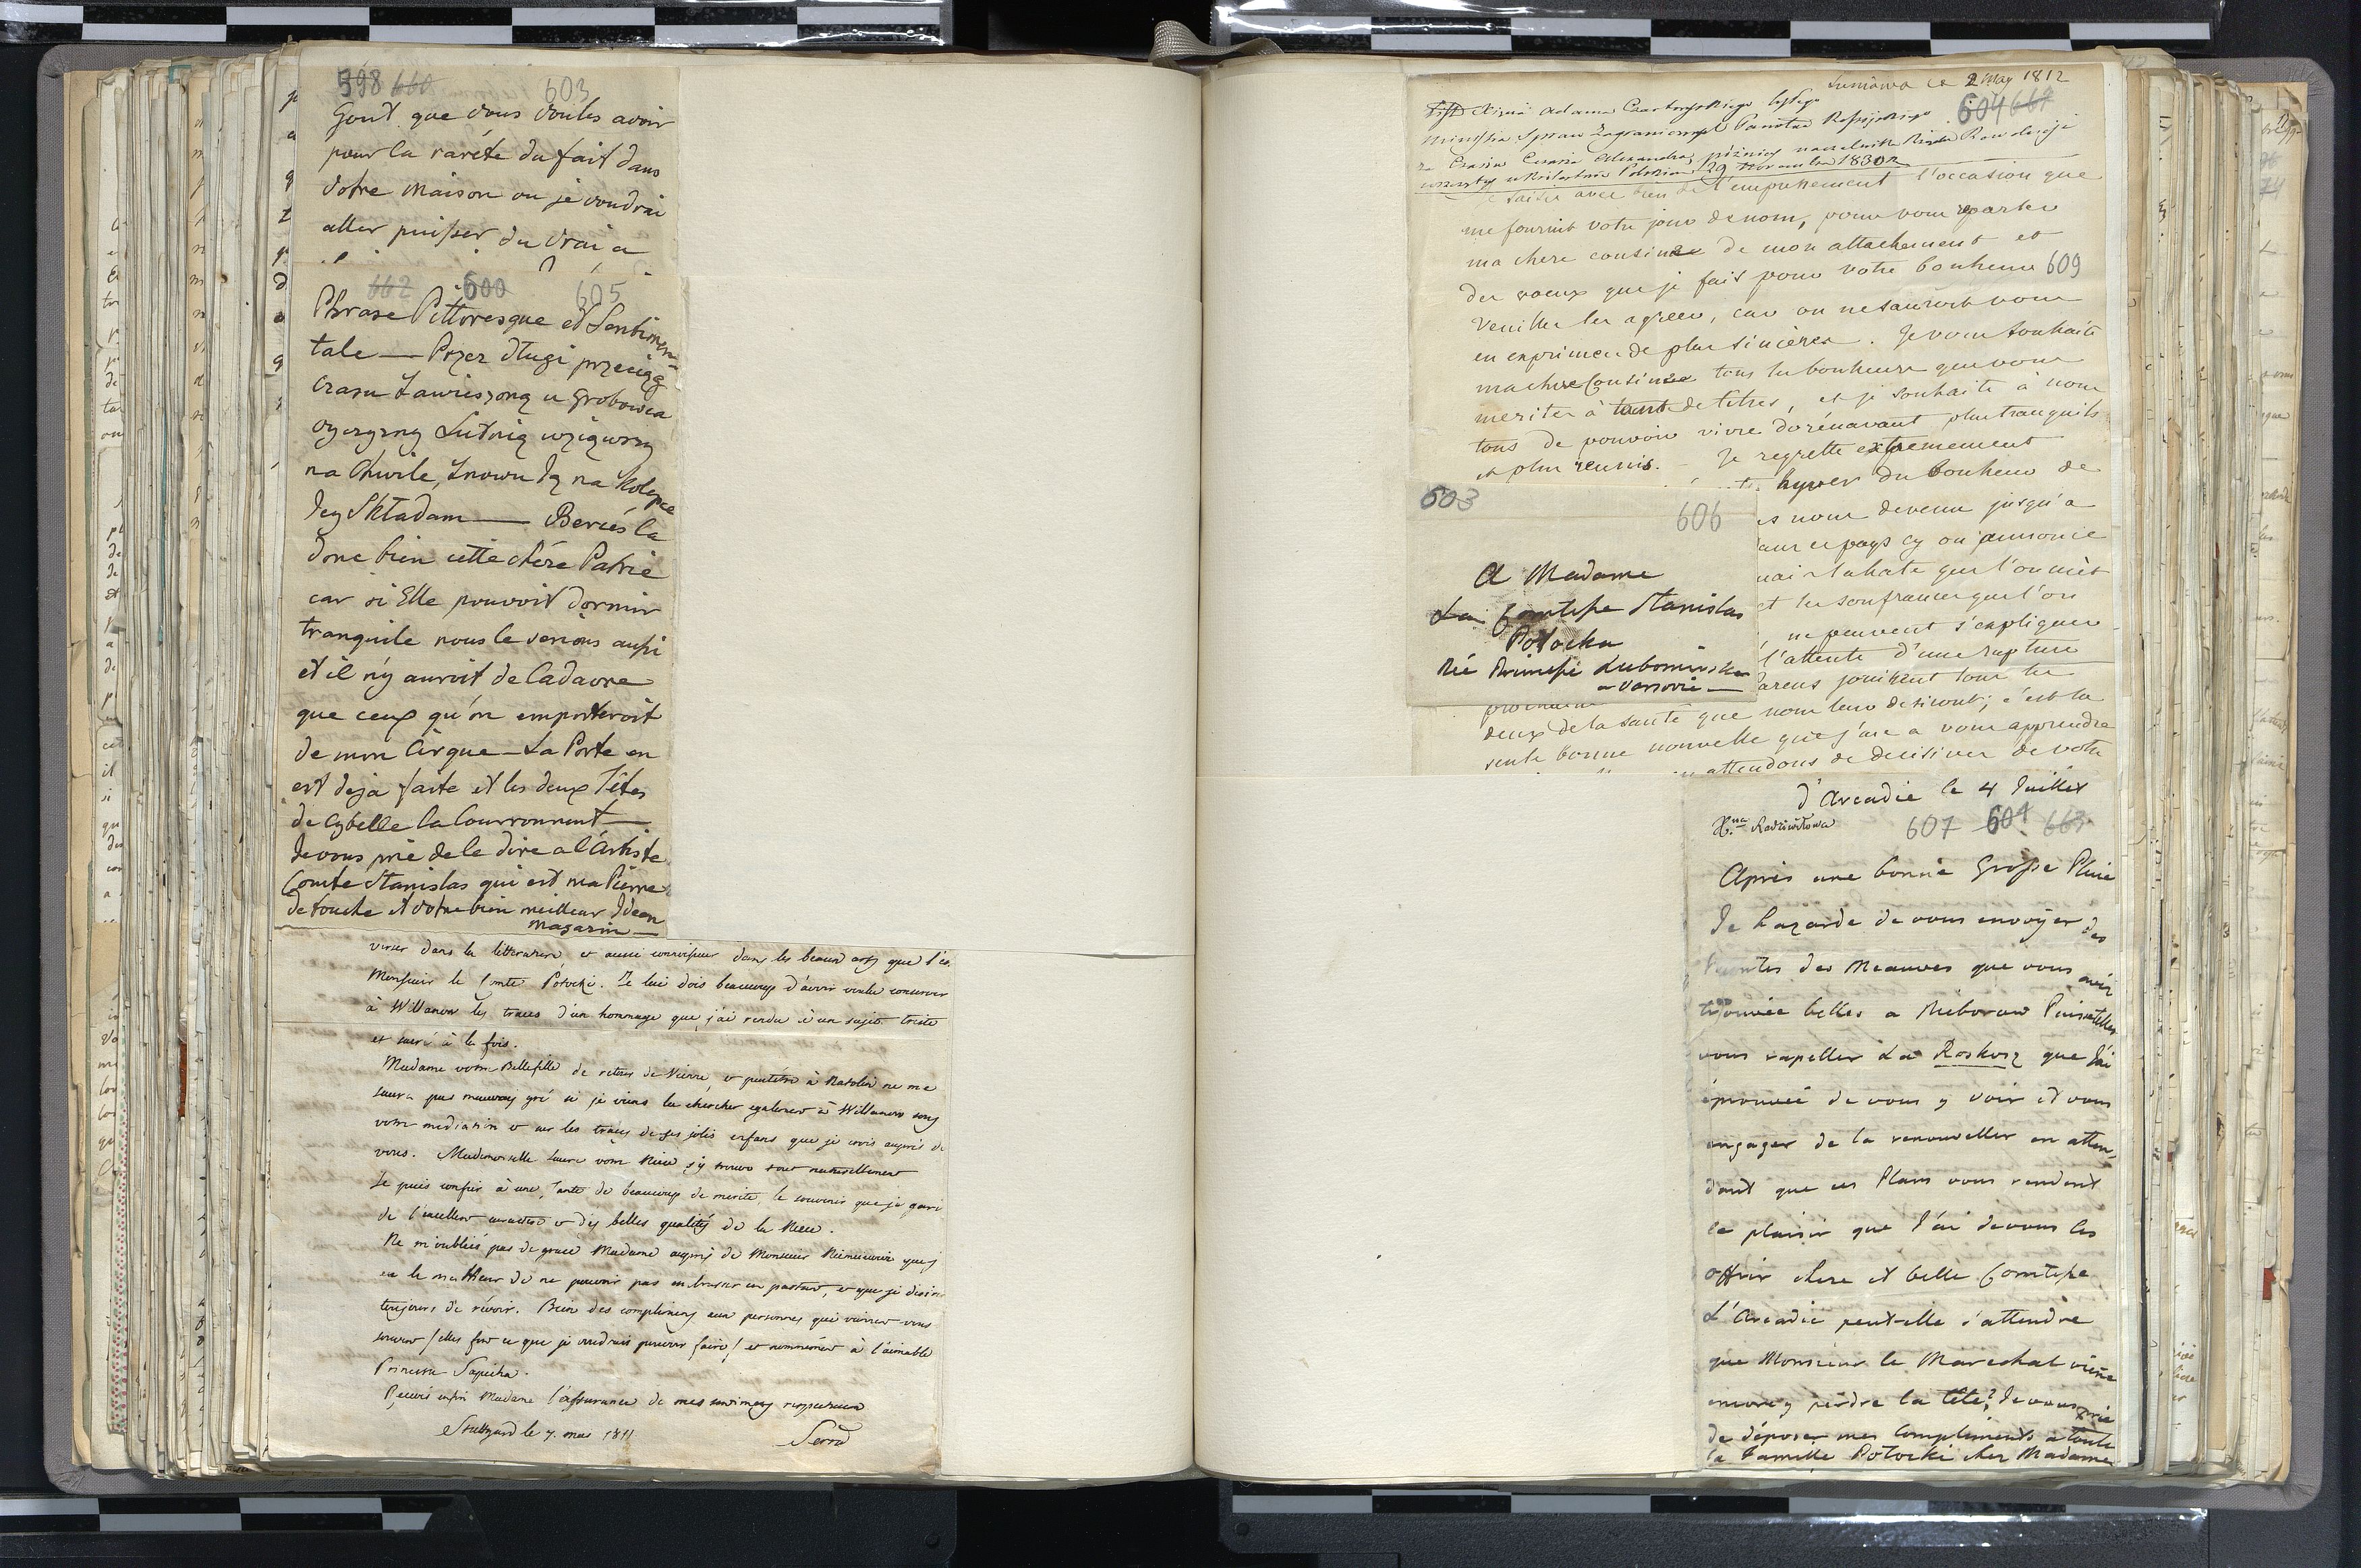 598 660 603
Gout que vous voulés avoir
pour la rareté du fait dans
votre maison ou je voudrai
aller puiser du vrai a
662 600 605
Phrase Pittoresque et Sentimen-
tale — Przez długi przeciąg
czasu Zawieszoną u Grobowca
oyczyzny Lutnią wziąwszy
na Chwile, Znowu Ją na Kolebce
Jey Składam — Bercés la
donc bien cette chére Patrie
car si Elle pouvoit dormir
tranquile nous le serions aussi
et il n'y auroit de Cadavre
que ceux qu'on emporteroit
de mon Cirque — La Porte en
est deja faite et les deux Têtes
de Cybelle la Couronnent —
Je vous prie de le dire a l'Artiste
Comte Stanislas qui est ma Pierre
de touche et votre bien meilleur Idean
Magazin —
verser dans la litterature, et aussi connoisseur dans les beaux arts que l'est
Monsieur le Comte Potocki. Je lui dois beaucoup d'avoir voulu conserver
à Willanow les traces d'un hommage que j'ai rendu à un sujet triste
et sacré à la fois.
Madame votre Bellefille de retour de Vienne, et peutêtre à Natolin ne me
saura pas mauvais gré si je viens la chercher egalement à Willanow sous
votre mediation et sur les traces de ses jolis enfans que je crois auprès de
vous. Mademoiselle Laure votre Niece s'y trouve tout naturellement
Je puis confier à une Tante de beaucoup de merite, le souvenir que je garde
de l'excellent caractere et des belles qualités de la Niece.
Ne m'oubliés pas de grace Madame auprès de Monsieur Niemcewicz que j'
eu le malheur de ne pouvoir pas embrasser en partant, et que je desire
toujours de révoir. Bien des complimens aux personnes qui viennent vous
souvent / elles font ce que je voudrais pouvoir faire / et nommément à l'aimable
Princesse Sapieha.
Recevés enfin Madame l'assurance de mes sentimens respectueux
Stuttgard le 7. mai 1811 Serra
Sieniawa ce 2 May 1812
604 664
List Xięcia Adama Czartoryskiego byłego
Ministra Spraw Zagranicznych Państwa Rossyiskiego
za Czasów Cesarza Alexandra, później naczelnika Rządu Rewolucyi
wszczętey w Królestwie Polskim 29 Novembra 1830 r.
Je saisis avec bien de l'empressement l'occasion que
me fournit votre jour de nom, pour vous reparler
ma chere cousine de mon attachement et
des voeux que je fais pour votre bonheur 609
Veuillez les agréer, car on ne sauroit vous
en exprimer de plus sincères. Je vous souhaite
ma chere Cousine tous les bonheurs que vous
meritez à tant de titres, et je souhaite à nous
tous de pouvoir vivre dorénavant plus tranquils
et plus reunis. — Je regrette extremement
hyver du bonheur de
es nous devenu jusqu'a
dans ce pays cy on annonce
mais la hate que l'on met
et les soufrances que l'on
, ne peuvent s'expliquer
l'attente d'une rupture
prochaine
arens jouissent tous les
deux de la santé que nous leur desirons; c'est la
seule bonne nouvelle que j'aie a vous apprendre
attendons de decisives de votre
603 606
A Madame
La Comtesse Stanislas
Potocka
Né Princesse Lubomirska
a Varsovie —
d'Arcadie le 4 Juillet
Xna Radziwiłowa
607 601 663
Après une bonne Grosse Pluie
Je hazarde de vous envoyer des
Plantes des Meauves que vous avéz
trouvée belles a Nieborow Puissent elles
vous rapeller La Roskosz que J'ai
éprouvée de vous y voir et vous
engager de la renouveller en atten-
dant que ces Plans vous rendent
le plaisir que J'ai de vous les
offrir chere et belle Comtesse
L'Arcadie peut-elle s'attendre
que Monsieur le Marechal vienne
encore y perdre la tête? Je vous prie
de déposer mes Compliments a toute
la Famille Potocki cher Madame